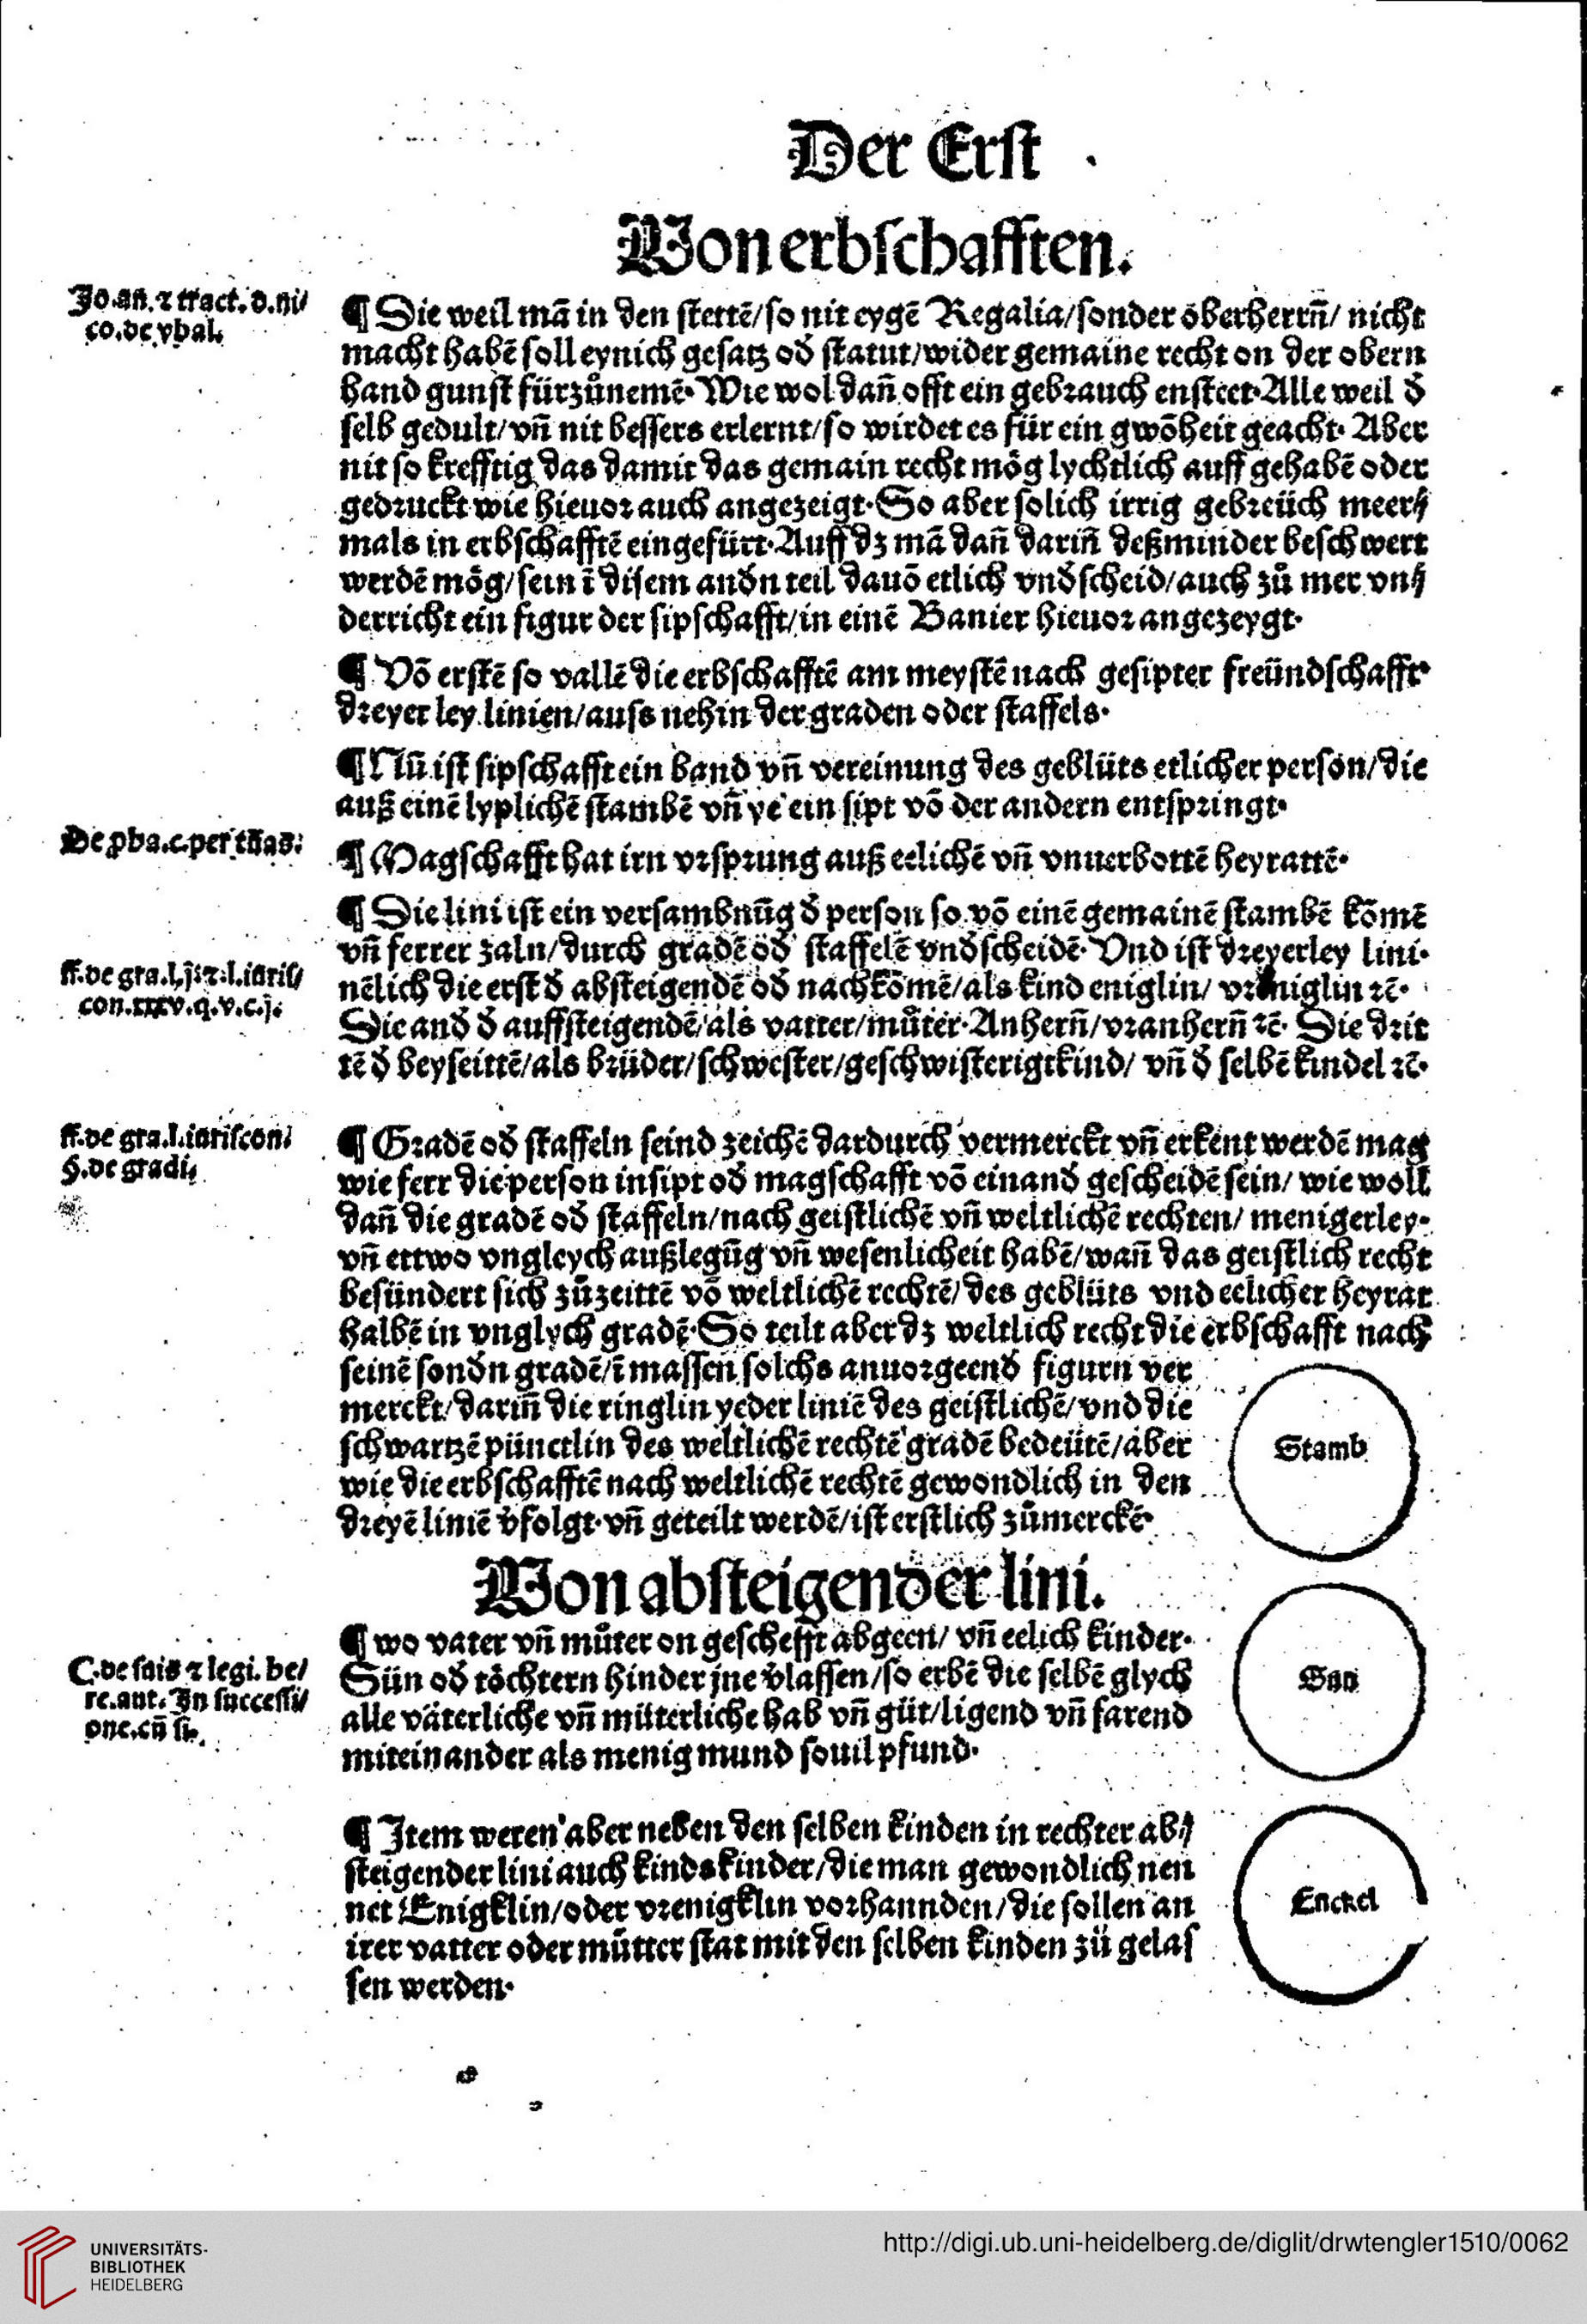 Der Erst
Von erbschafften.
Jo.an. ⁊ tract. d. ni/
co. de vbal.
¶ Die weil mā in den stettē/so nit eygē Regalia/sonder oberherrn̄/ nicht
macht habē soll eynich gesatz od̕ statut/wider gemaine recht on der obern
hand gunst fürzůnemē. Wie wol dan̄ offt ein gebrauch ensteet. Alle weil d̕
selb gedult/vn̄ nit bessers erlernt/so wirdet es für ein gwōheit geacht. Aber
nit so krefftig das damit das gemain recht mög lychtlich auff gehabē oder
gedruckt wie hieuor auch angezeigt. So aber solich irrig gebreüch meer⸗
mals in erbschafftē eingefürt. Auff dz mā dan̄ darin̄ deßminder beschwert
werdē mög/sein ī disem and̕n teil dauō etlich vnd̕scheid/auch zů mer vn⸗
derricht ein figur der sipschafft/in einē Banier hieuor angezeygt.
¶ Vō erstē so vallē die erbschafftē am meystē nach gesipter freündschafft.
dreyer ley linien/auss nehin der graden oder staffels.
¶ Nū ist sipschafft ein band vn̄ vereinung des geblüts etlicher person/die
auß einē lyplichē stambē vn̄ ye ein sipt vō der andern entspringt.
De ꝓba.c.per tūas.
¶ Magschafft hat irn vrsprung auß eelichē vn̄ vnuerbottē heyrattē.
¶ Die lini ist ein versambnūg d̕ person so vō einē gemainē stambē kōmē
vn̄ ferrer zaln/durch gradē od̕ staffelē vnd̕scheidē. Vnd ist dreyerley lini.
ff.de gra.l.j. ⁊.l.iuris/
con.xxxv.q.v.c.j.
nēlich die erst d̕ absteigendē od̕ nachkōmē/als kind eniglin/ vreniglin ⁊ē.
Die and̕ d̕ auffsteigendē/als vatter/můter. Anhern̄/vranhern̄ ⁊ē. Die drit
tē d̕ beyseittē/als brüder/schwester/geschwisterigtkind/ vn̄ d̕ selbē kindel ⁊ē.
ff.de gra.l.iuriscon/
§.de gradi.
¶ Gradē od̕ staffeln seind zeichē dardurch vermerckt vn̄ erkent werdē mag
wie ferr die person in sipt od̕ magschafft vō einand̕ gescheidē sein/ wie woll
dan̄ die gradē od̕ staffeln/nach geistlichē vn̄ weltlichē rechten/ menigerley.
vn̄ ettwo vngleych außlegūg vn̄ wesenlicheit habē/wan̄ das geistlich recht
besündert sich zůzeittē vō weltlichē rechtē/des geblüts vnd eelicher heyrat
halbē in vnglych gradē. So teilt aber dz weltlich recht die erbschafft nach
seinē sond̕n gradē/ī massen solchs an vorgeend̕ figurn ver
merckt/darin̄ die ringlin yeder liniē des geistlichē/vnd die
schwartzē pünctlin des weltlichē rechtē gradē bedeütē/aber
wie die erbschafftē nach weltlichē rechtē gewondlich in den
dreyē liniē v̕folgt. vn̄ geteilt werdē/ist erstlich zůmerckē.
Stamb
Von absteigender lini.
¶ wo vater vn̄ můter on geschefft abgeen/ vn̄ eelich kinder.
C.de suis ⁊ legi. he/
re.aut. In successi/
one.cū si.
Sün od̕ töchtern hinder jne v̕lassen/so erbē die selbē glych
alle väterliche vn̄ müterliche hab vn̄ güt/ligend vn̄ farend
miteinander als menig mund souil pfund.
Sun
¶ Item weren aber neben den selben kinden in rechter ab⸗
steigender lini auch kindskinder/die man gewondlich nen
net Enigklin/oder vrenigklin vorhannden/die sollen an
irer vatter oder můtter stat mit den selben kinden zů gelas
sen werden.
Enckel
UNIVERSITÄTS-
BIBLIOTHEK
HEIDELBERG
http://digi.ub.uni-heidelberg.de/diglit/drwtengler1510/0062